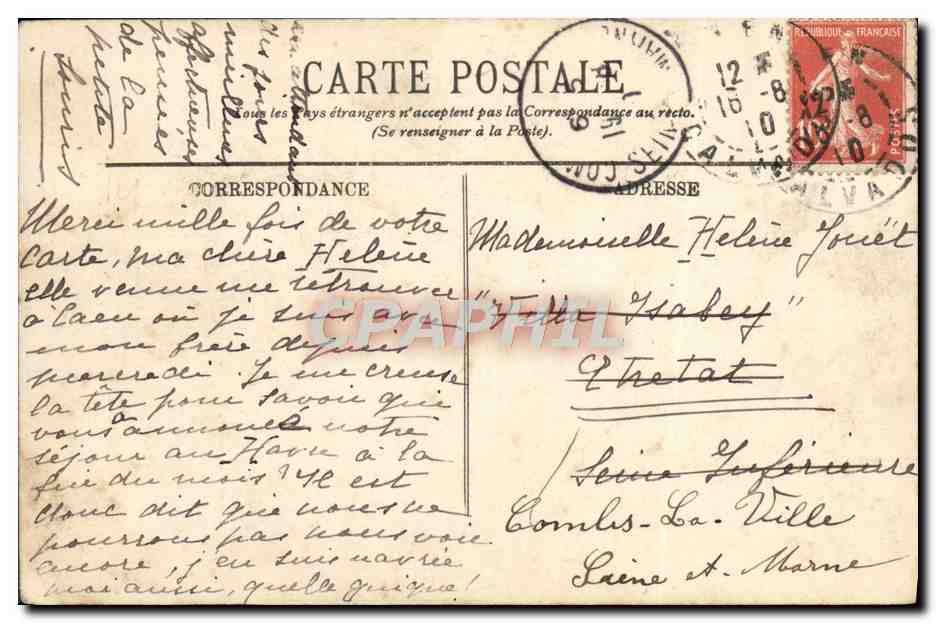 CARTE POSTALE
Tous les Pays étrangers n'acceptent pas la Correspondance au recto.
(Se renseigner à la Poste).
CORRESPONDANCE
ADRESSE
Merci mille fois de votre
carte, ma chère Helène
elle venue me retrouver
à Caen où je suis avec
mon frère depuis
mercredi. Je me creuse
la tête pour savoir qui
vous a annoncé notre
séjour au Havre à la
fin du mois? Il est
donc dit que nous ne
pourrons pas nous voir
encore, j'en suis navrée
moi aussi, quelle guigne!
En attendant
des jours
meilleurs
affectueuses
pensées
de la
petite
Souris
Mademoiselle Helène Jouët
"Villa Isabey"
Etretat
Seine Inférieure
Combs-La-Ville
Seine et Marne
REPUBLIQUE FRANÇAISE
POSTES
12
16 -8
10
CALVADOS
-8
10
CPAPHIL